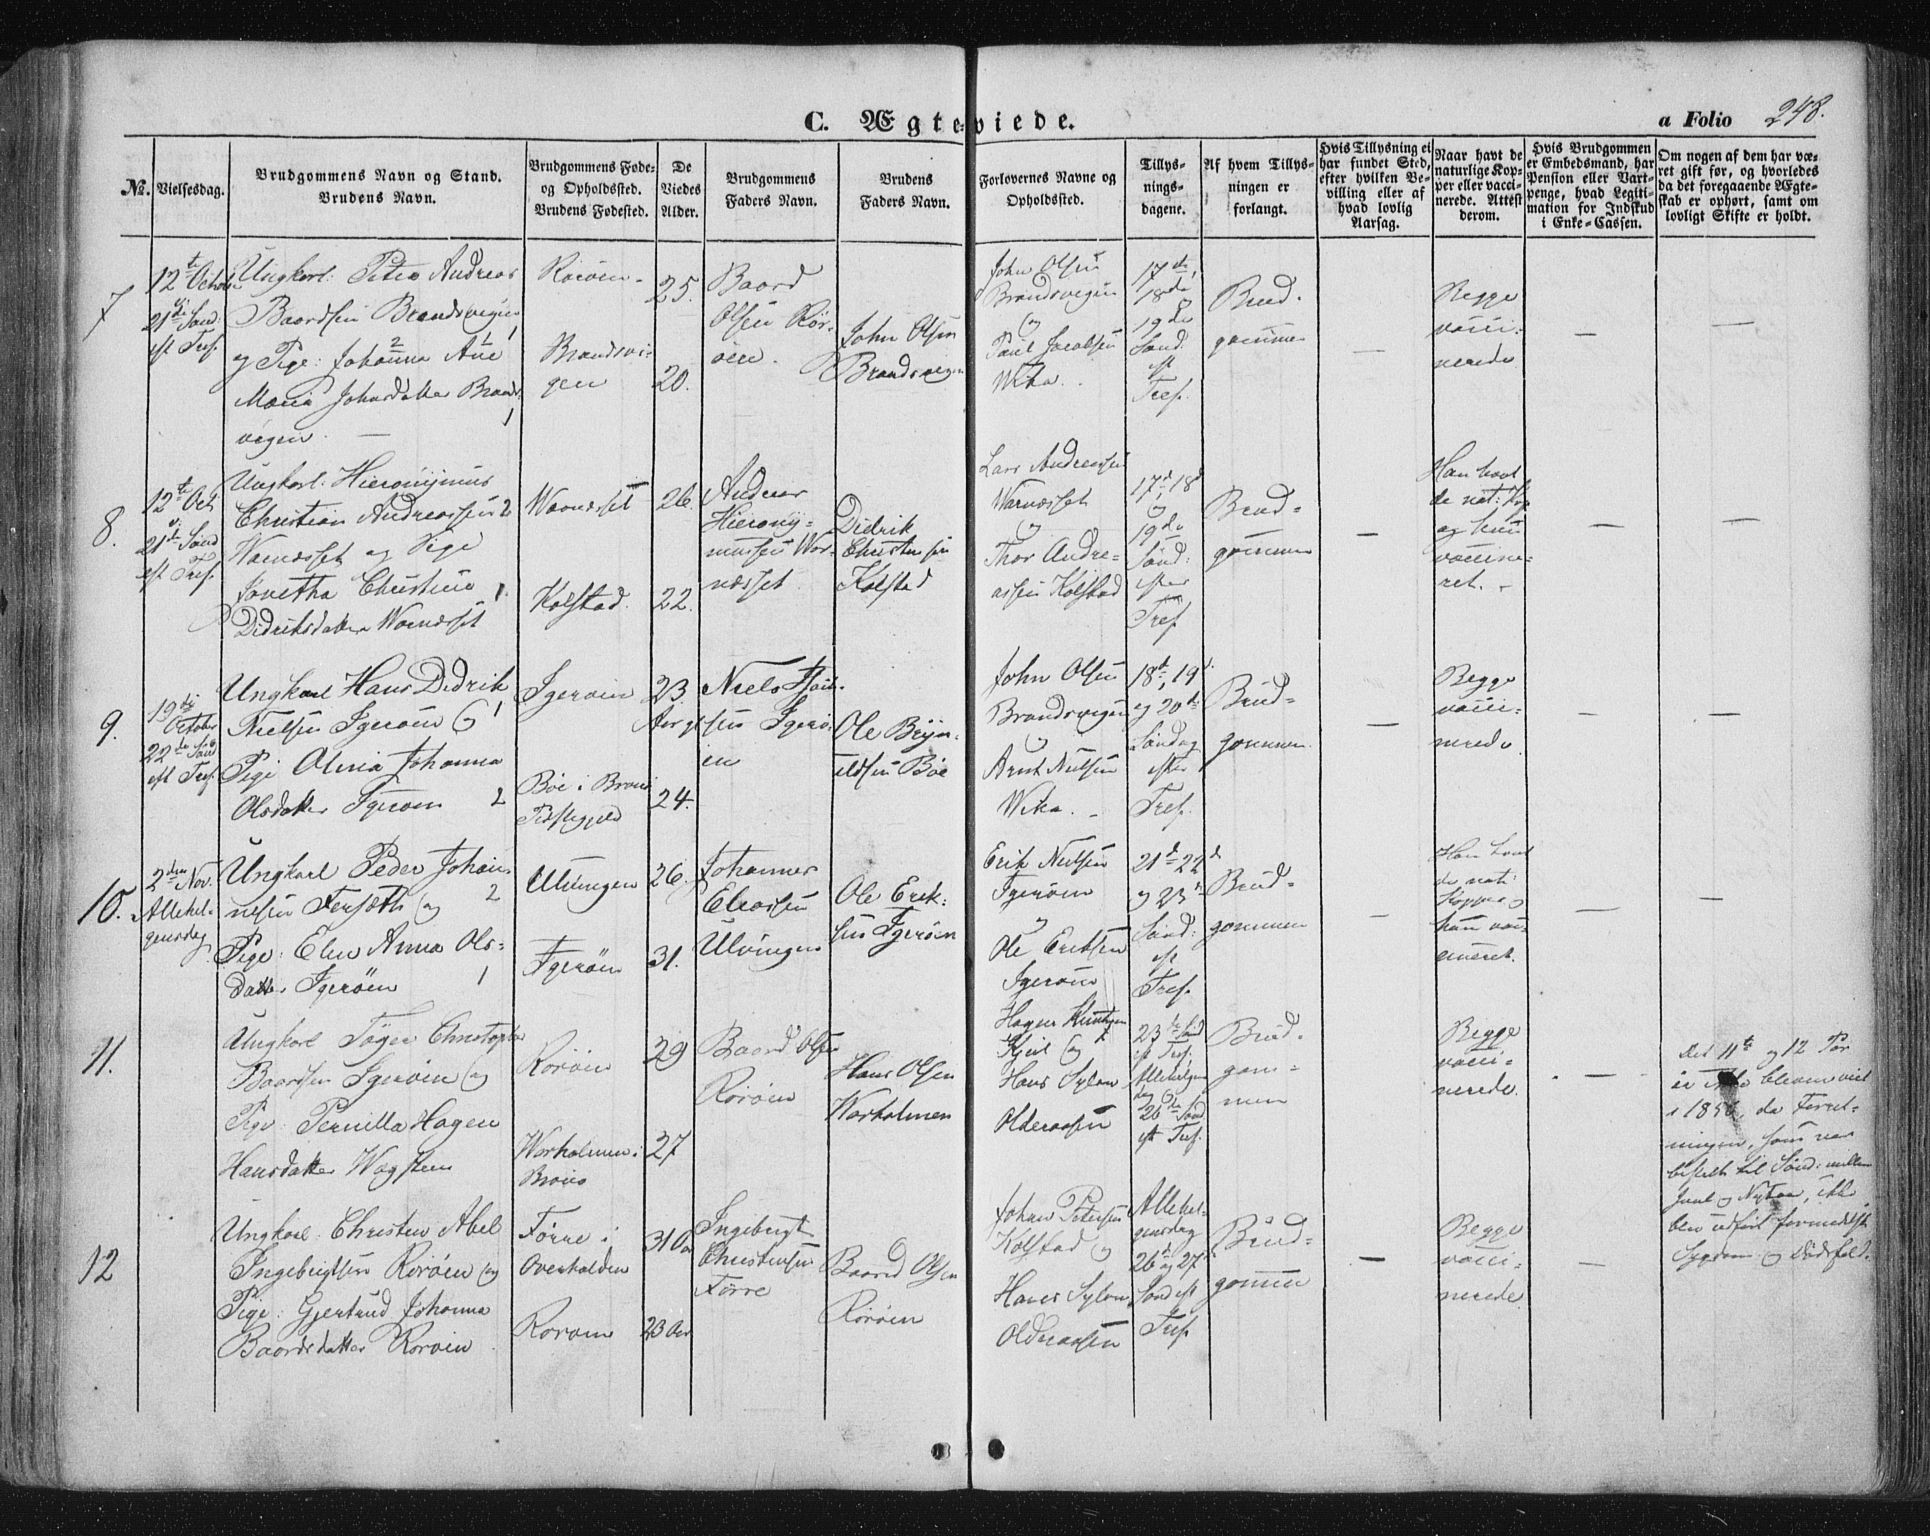 C. Ægteviede.
a Folio 248.
No.
Vielsesdag.
Brudgommens Navn og Stand.
Brudens Navn.
Brudgommens Føde-
og Opholdssted.
Brudens Fødested.
De
Viedes
Alder.
Brudgommens
Faders Navn.
Brudens
Faders Navn.
Forlovernes Navne og
Opholdssted.
Tillys-
nings-
dagene.
Af hvem Tillys-
ningen er
forlangt.
Hvis Tillysning ei
har fundet Sted,
efter hvilken Be-
villing eller af
hvad lovlig
Aarsag.
Naar havt de
naturlige Kop-
per eller vacci-
nerede. Attest
derom.
Hvis Brudgommen
er Embedsmand, har
Pension eller Vart-
penge, hvad Legiti-
mation for Indskud
i Enke-Cassen.
Om nogen af dem har væ-
ret gift før, og hvorledes
da det foregaaende Ægte-
skab er ophørt, samt om
lovligt Skifte er holdt.
7
12te October
21de Sønd:
eft Tref.
Ungkarl: Peter Andreas
Baardsen Brandsvigen 1
og Pige: Johanna Ane
Maria Johnsdatter Brands-
vigen.
Rorøen
Brandsvi-
gen
25.
20.
Baard
Olsen Rør-
øen.
John Olsen
Brandsvigen
John Olsen
Brandsvigen
og
Paul Jacobsen
Wika.
17de,
18de
og
19de
Sønd:
eft
Tref.
Brud-
gommen
—
Begge
vacci-
nerede
—
—
8.
12te Oct
21de Sønd
eft Tref.
Ungkarl: Hieronymus
Christian Andreassen 2
Warnæsset og Pige
Javetha Christine 1.
Didriksdatter Warnæsset
Warnæsset
Kolstad.
26.
22.
Andreas
Hierony-
mussen War-
næsset.
Didrik
Christensen
Kolstad
Lars Andreassen
Warnæsset
og
Thor Andre-
assen Kolstad
17de, 18
og
19de
Sønd:
efter
Tref.
Brud-
gommen
—
Han havt
de nat: Kop
og hun
vaccine-
ret.
—
—
9.
19de
October
22de Sønd
eft Tref.
Ungkarl Hans Didrik
Nielsen Igerøen og 1
Pige Olina Johanna
Olsdatter Igerøen 2
Igerøen
Bøe i Brønø
Præstegjeld
23
Aar
24.
Niels
sen Igerø-
en
Ole Bryn-
ildsen Bøe
John Olsen
Brandsvigen
og
Arnt Nielsen
Wika.
18de, 19
og 20de
Søndag
efter
Tref.
Brud-
gommen.
—
Begge
vacci-
nerede.
—
—
10.
2den Nov.
Allehel-
gensdag.
Ungkarl Peder Johan-
nesen Forsæth og 2
Pige: Elen Anna Ols-
datter Igerøen 1
Ulvingen
Igerøen
26.
31.
Johannes
Eliassen
Ulvingen
Ole Erik-
sen Igerøen
Erik Nielsen
Igerøen
og
Ole Eriksen
Igerøen
21de 22de
og 23de
Sønd:
eft
Tref.
Brud-
gommen
—
Han havt
de nat:
Kopper og
hun vac-
cineret.
—
—
11.
Ungkarl Christopher
Baardsen Igerøen og
Pige: Pernilla Hagen
Hansdatter Wagsteen
Rorøen
Warholmen i
Brønø
29
27
Baard Olsen
Rorøen
Hans Olsen
Warholmen
Hagen
og
Hans Sylou
Olderaasen
23de Sønd
eft Tref.
Allehelgens
dag og
26de Sønd
eft Tref.
Brud-
gom-
men
Begge
vacci-
nerede.
—
Det 11te og 12 Par
er ikke bleven viet
i 1856, da Forret-
ningen, som var
bestilt til Sønd: mellem
Juul og Nytaar, ikke
blev udført formedelst
Sygdom og Dødsfald.
12
Ungkarl: Christen Abel
Ingebrigtsen Rorøen og
Pige: Gjertrud Johanna
Baardsdatter Rorøen
Førre i
Overhalden
Rorøen
31 Aar
23 Aar
Ingebrigt
Christensen
Førre
Baard Olsen
Rorøen
Johan Petersen
Kolstad og
Hans Sylou
Olderaasen
Allehel-
gensdag
26de og 27de
Sønd eft
Tref.
Brud-
gommen
—
Begge
vacci-
nerede.
—